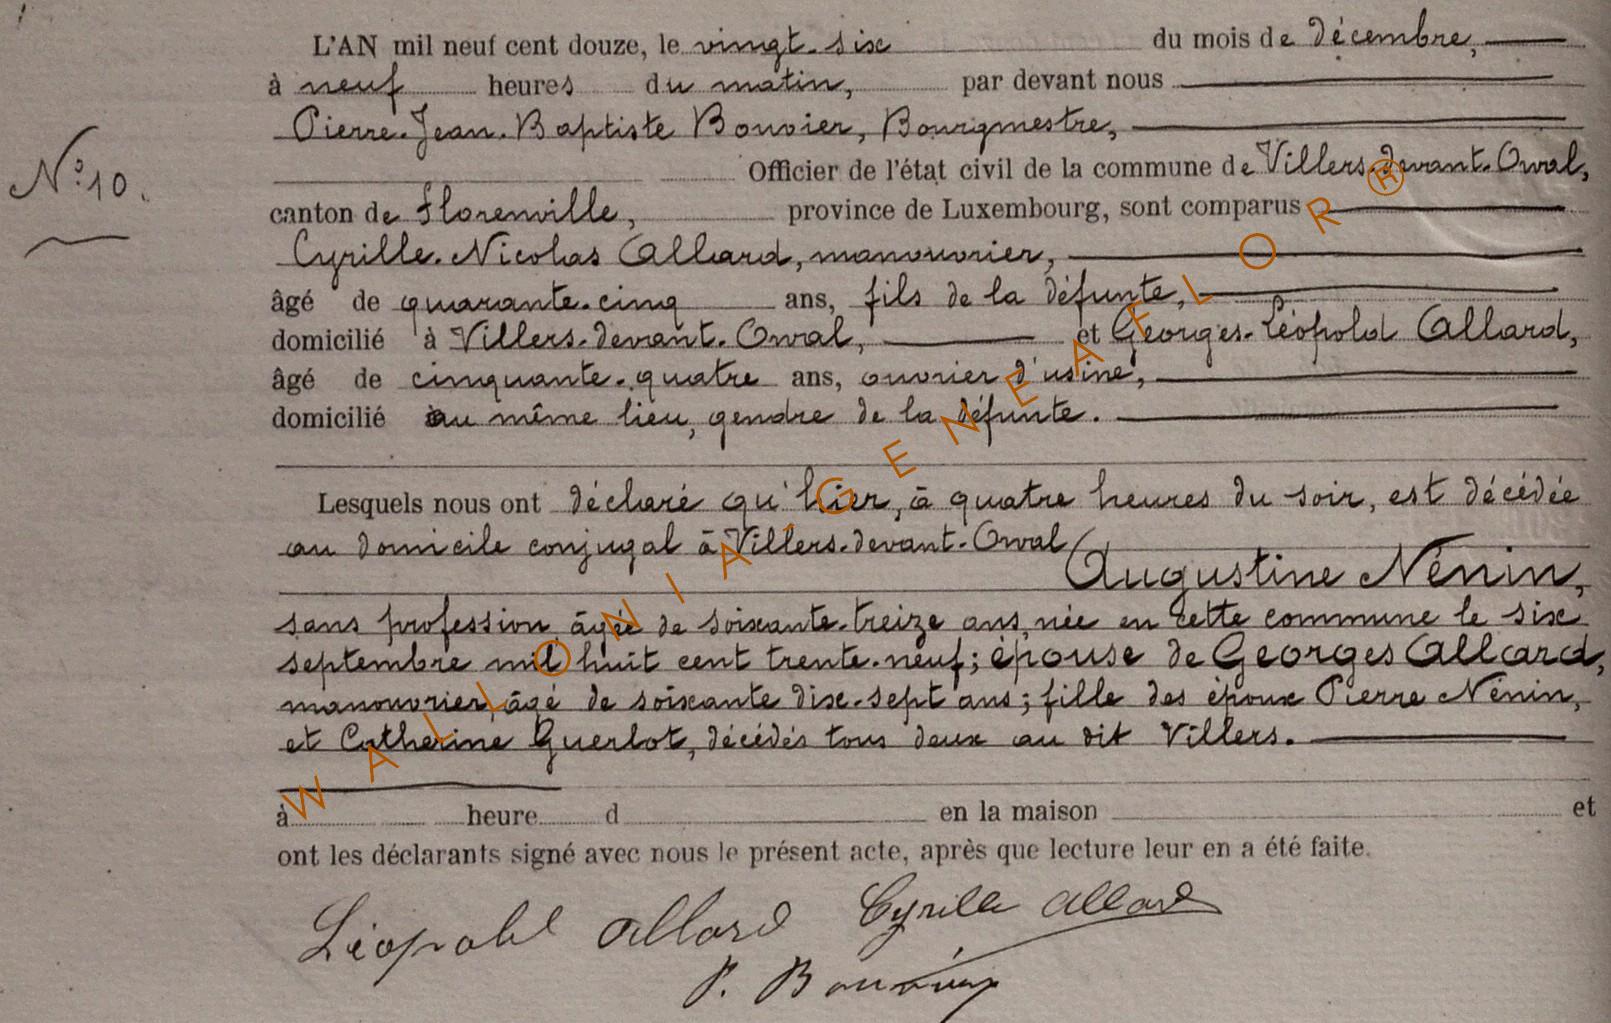 L'AN mil neuf cent douze, le vingt-six du mois de décembre,
à neuf heures du matin, par devant nous
Pierre-Jean-Baptiste Bouvier, Bourgmestre,
N° 10.
Officier de l'état civil de la commune de Villers-devant-Orval,
canton de Florenville, province de Luxembourg, sont comparus
Cyrille-Nicolas Allard, manouvrier,
âgé de quarante-cinq ans, fils de la défunte,
domicilié à Villers-devant-Orval, et Georges-Léopold Allard,
âgé de cinquante-quatre ans, ouvrier d'usine,
domicilié au même lieu, gendre de la défunte.
Lesquels nous ont déclaré qu'hier, à quatre heures du soir, est décédée
au domicile conjugal à Villers-devant-Orval
Augustine Nénin,
sans profession, âgée de soixante-treize ans, née en cette commune le six
septembre mil huit cent trente-neuf; épouse de Georges Allard,
manouvrier, âgé de soixante dix-sept ans; fille des époux Pierre Nénin,
et Catherine Guerlot, décédés tous deux au dit Villers.
à heure d en la maison et
ont les déclarants signé avec nous le présent acte, après que lecture leur en a été faite.
Léopold Allard Cyrille Allard
P. Bouvier
WALLONIA-GENEAFLOR®